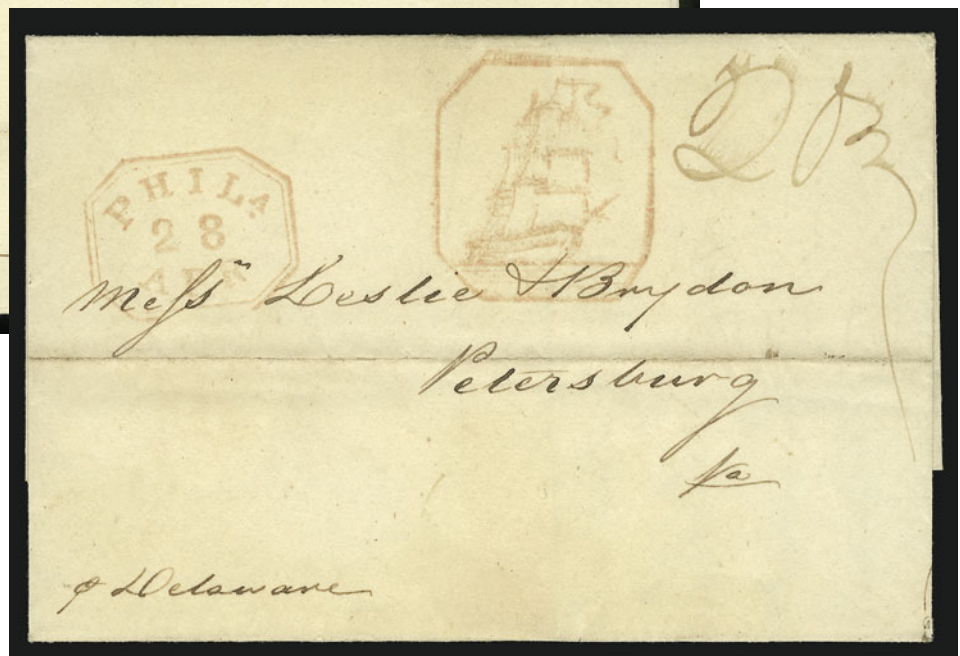 PHILA.
28
APR
Mess<sup>rs</sup> Leslie & Brydon
Petersburg
Va
p Delaware